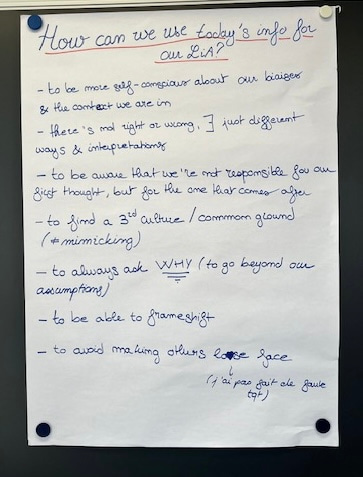 How can we use today's info for
our LiA?
- to be more self-conscious about our biaises
& the context we are in
- there's not right or wrong, ∃ just different
ways & interpretations
- to be aware that we're not responsible for our
first thought, but for the one that comes after
- to find a 3rd culture / common ground
(≠ mimicking)
- to always ask WHY (to go beyond our
assumptions)
- to be able to frameshift
- to avoid making others lose face
(j'ai pas fait de faute
tqt)